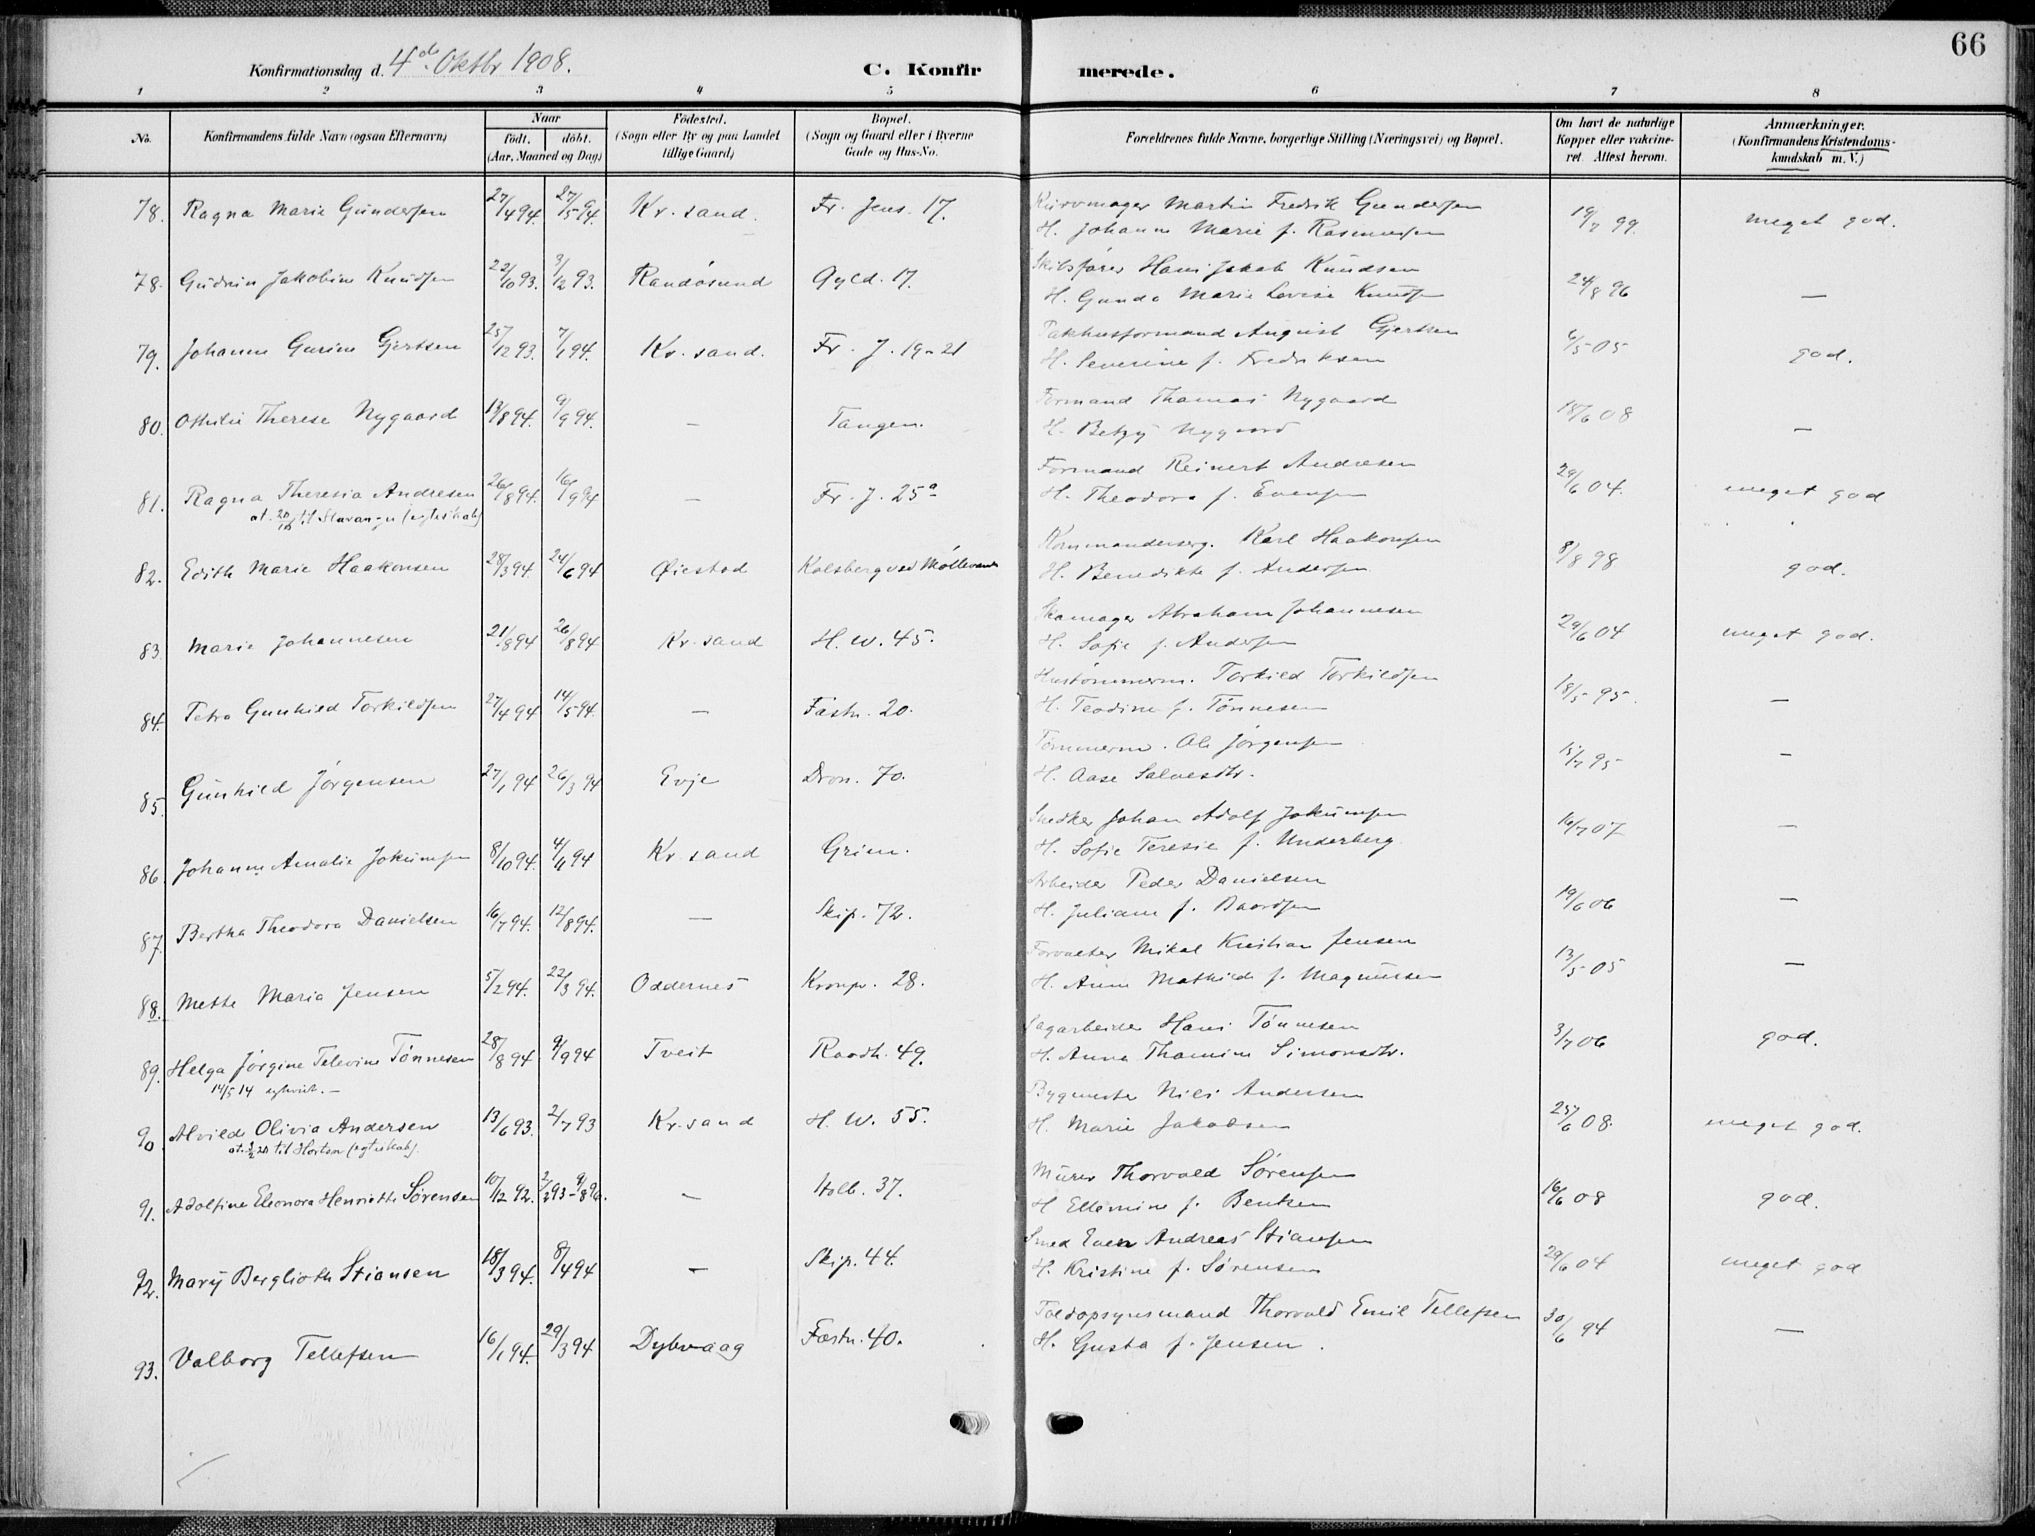 66
Konfirmationsdag d. 4de Oktbr 1908.
C. Konfirmerede.
1 2 3 4 5 6 7 8
No.
Konfirmandens fulde Navn (ogsaa Efternavn)
Naar
født. døbt.
(Aar, Maaned og Dag)
Födested.
(Sogn eller By og paa Landet
tillige Gaard)
Bopæl.
(Sogn og Gaard eller i Byerne
Gade og Hus-No.
Forældrenes fulde Navne, borgerlige Stilling (Næringsvei) og Bopæl.
Om havt de naturlige
Kopper eller vakcine-
ret. Attest herom.
Anmærkninger.
(Konfirmandens Kristendoms-
kundskab m. V.)
78. Ragna Marie Gundersen 27/4 94. 27/5 94. Kr. sand. Fr. Jens. 17. Kurvmager Martin Fredrik Gundersen 19/7 99. meget god.
H. Johanne Marie f. Rasmussen
78. Gudrun Jakobine Knudsen 22/10 93. 3/12 93. Randøsund Gyld. 17. Skibsfører Hans Jakob Knudsen 24/8 96 —
H. Gunda Marie Lovise Knudsen
79. Johanne Gurine Gjertsen 25/12 93. 7/1 94. Kr. sand. Fr. J. 19-21 Pakhusformand August Gjertsen 6/5 05 god.
H. Severine f. Fredriksen
80. Othilie Therese Nygaard 13/8 94. 9/9 94. — Tangen. Formand Thomas Nygaard 18/6 08 —
H. Betzy Nygaard
81. Ragna Theresia Andresen 26/8 94. 16/9 94 — Fr. J. 25a Formand Reinert Andresen 29/6 04. meget god
at. 20/10 til Stavanger (egteskab) H. Theodora f. Evensen
82. Edith Marie Haakonsen 28/3 94. 24/6 94 Øiestad Kolsberg ved Møllevand Kommanderserg. Karl Haakonsen 8/8 98 god.
H. Benedikte f. Andersen
83. Marie Johannesen 21/8 94 26/8 94 Kr. sand H. W. 45. Skomager Abraham Johannesen 29/6 04 meget god.
H. Sofie f. Andersen
84. Petra Gunhild Torkildsen 27/4 94 14/5 94. — Fæstn. 20. Hustømmerm. Torkild Torkildsen 18/5 95. —
H. Teodine f. Tønnesen
85. Gunhild Jørgensen 27/1 94 26/3 94 Evje Dron. 70. Tømmerm. Ole Jørgensen 15/7 95 —
H. Aase Salvesdtr.
86. Johanne Amalie Jokumsen 8/10 94. 4/11 94 Kr. sand Grim. Snedker Johan Adolf Jokumsen 16/7 07 —
H. Sofie Teresie f. Underberg.
87. Bertha Theodora Danielsen 16/7 94. 12/8 94. — Skip. 72. Arbeider Peder Danielsen 19/6 06 —
H. Juliane f. Baardsen
88. Mette Maria Jensen 5/2 94. 22/3 94. Oddernes Kronpr. 28. Forvalter Mikal Kristian Jensen 13/5 05 —
H. Anne Mathilde f. Magnussen
89. Helga Jørgine Televine Tønnesen 28/8 94 9/9 94 Tveit Raadh. 49. Sagarbeider Hans Tønnesen 3/7 06 god.
14/5 14 H. Anna Thomine Simonsdtr.
90. Alvilde Olivia Andersen 13/6 93. 2/7 93 Kr. sand H. W. 55. Bygmester Nils Andersen 25/6 08. meget god.
at. 3/2 20 til Horten (egteskab). H. Marie Jakobsen
91. Adolfine Eleonora Henriette Sørensen 10/12 92. 2/3 93 - 9/8 96. — Holb. 37. Murer Thorvald Sørensen 16/6 08 god.
H Ellemine f. Bentsen
92. Mary Berglioth Stiansen 18/3 94. 8/4 94 — Skip. 44. Smed Even Andreas Stiansen 29/6 04 meget god
H. Kristine f. Sørensen
93. Valborg Tellefsen 16/1 94. 29/3 94 Dybvaag Fæstn. 40. Toldopsynsmand Thorvald Emil Tellefsen 30/6 94 —
H. Gusta f. Jensen.